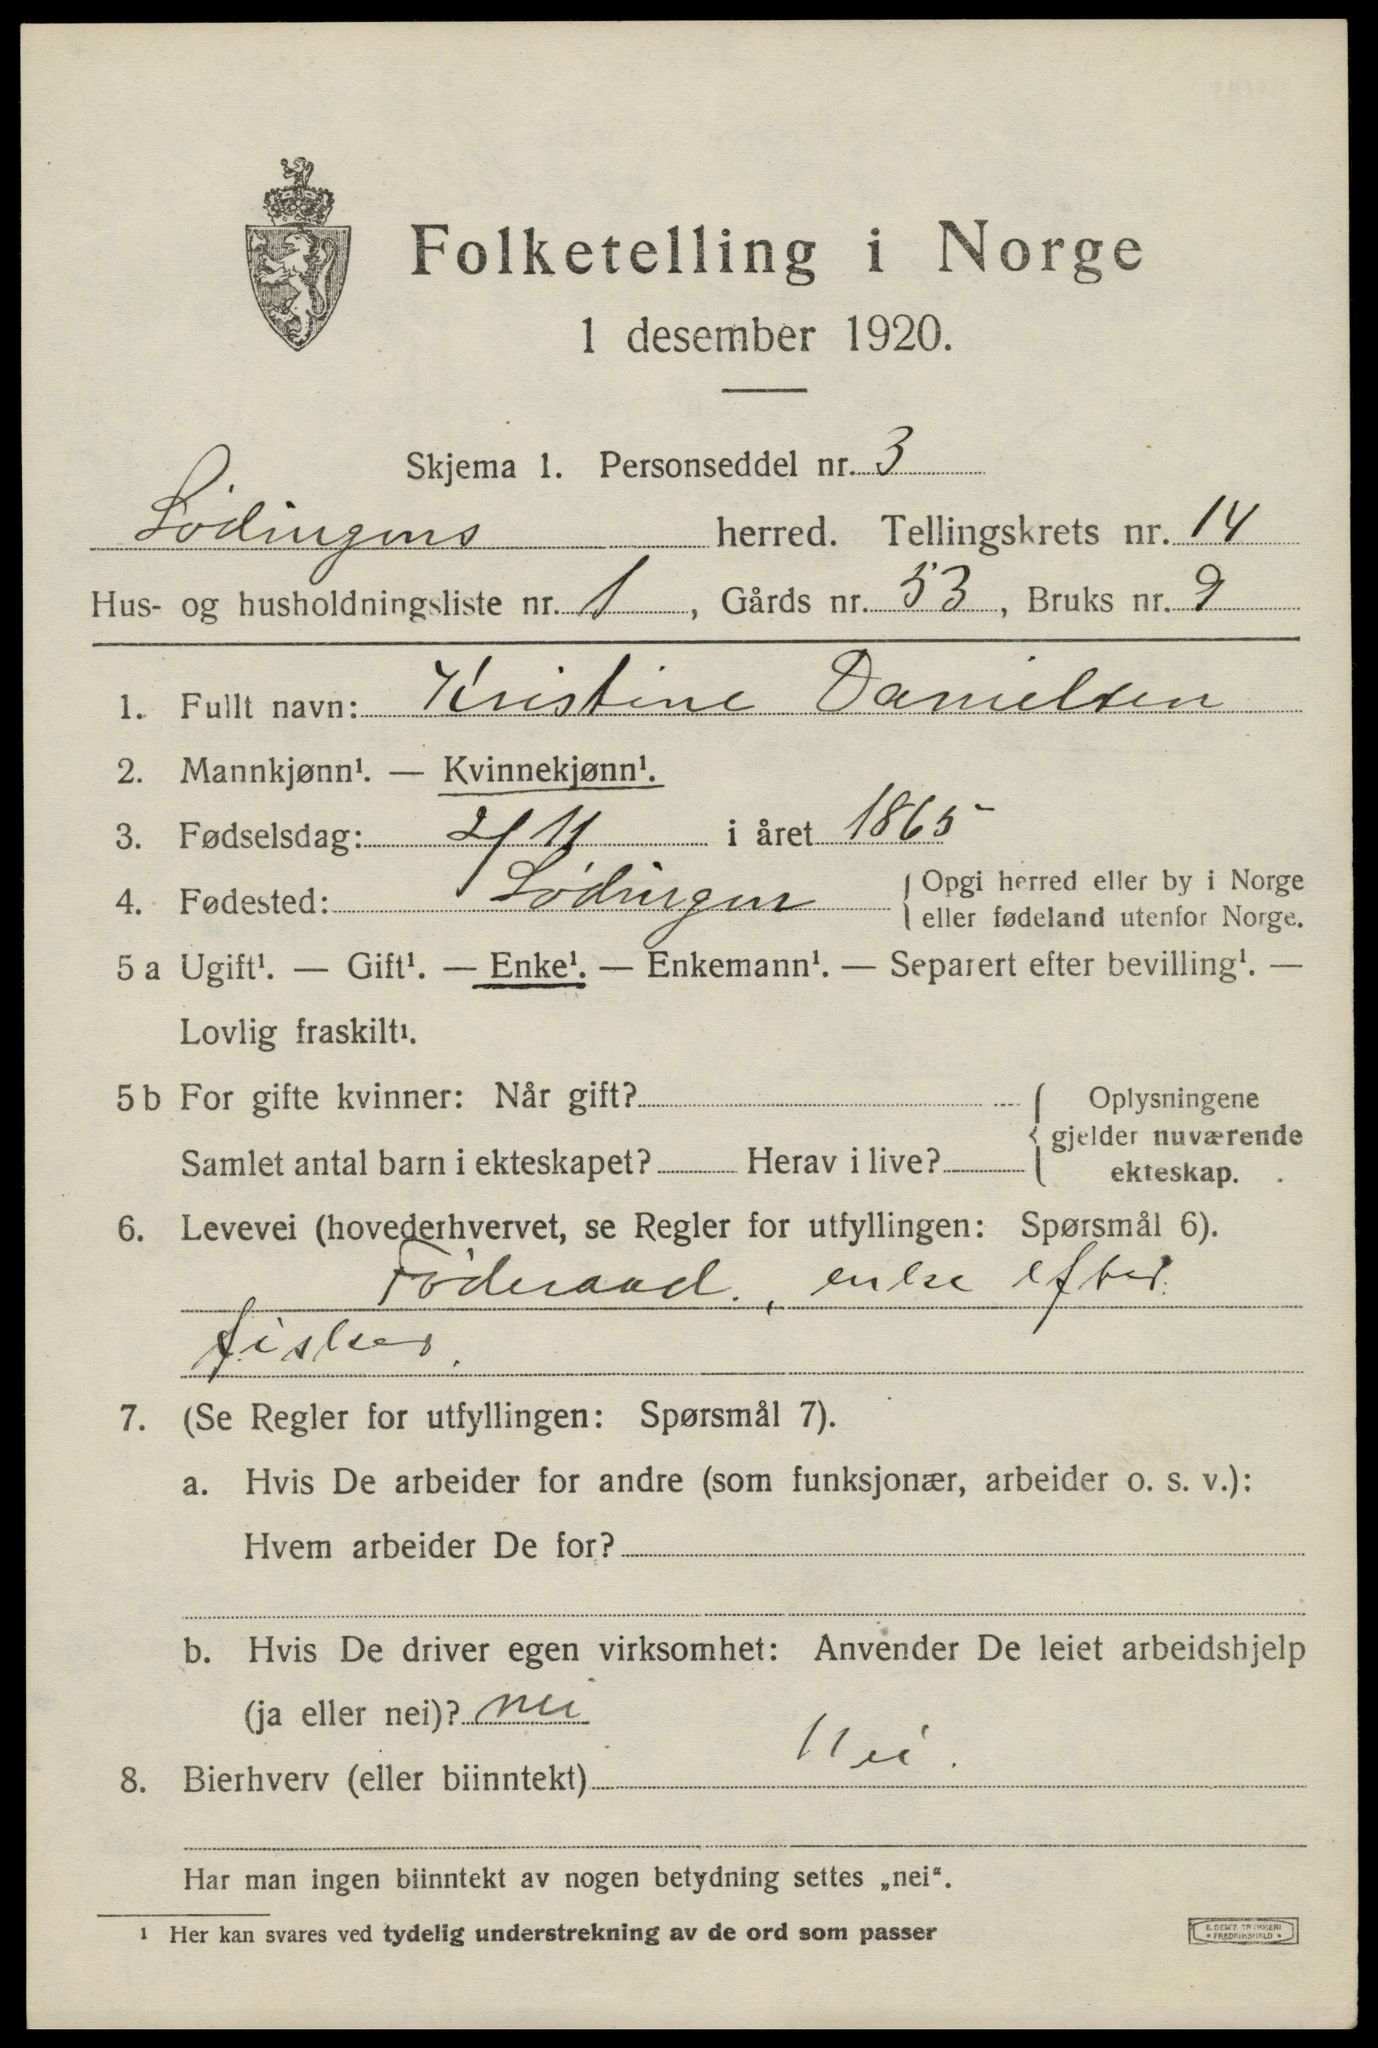 Folketelling i Norge
1 desember 1920.
Skjema 1. Personseddel nr. 3
Lödingens herred. Tellingskrets nr. 14
Hus- og husholdningsliste nr. 1, Gårds nr. 53, Bruks nr. 9
1. Fullt navn: Kristine Danielsen
2. Mannkjønn¹. — Kvinnekjønn¹.
3. Fødselsdag: 2/11 i året 1865
4. Fødested: Lödingen { Opgi herred eller by i Norge
eller fødeland utenfor Norge.
5 a Ugift¹. — Gift¹. — Enke¹. — Enkemann¹. — Separert efter bevilling¹. —
Lovlig fraskilt¹.
5 b For gifte kvinner: Når gift? { Oplysningene
gjelder nuværende
Samlet antal barn i ekteskapet? Herav i live? ekteskap.
6. Levevei (hovederhvervet, se Regler for utfyllingen: Spørsmål 6).
Föderaad., enke efter
fisker.
7. (Se Regler for utfyllingen: Spørsmål 7).
a. Hvis De arbeider for andre (som funksjonær, arbeider o. s. v.):
Hvem arbeider De for?
b. Hvis De driver egen virksomhet: Anvender De leiet arbeidshjelp
(ja eller nei)? nei
8. Bierhverv (eller biinntekt) Nei.
Har man ingen biinntekt av nogen betydning settes „nei“.
¹ Her kan svares ved tydelig understrekning av de ord som passer
E. SEM'S TRYKKERI
• FREDRIKSHALD •